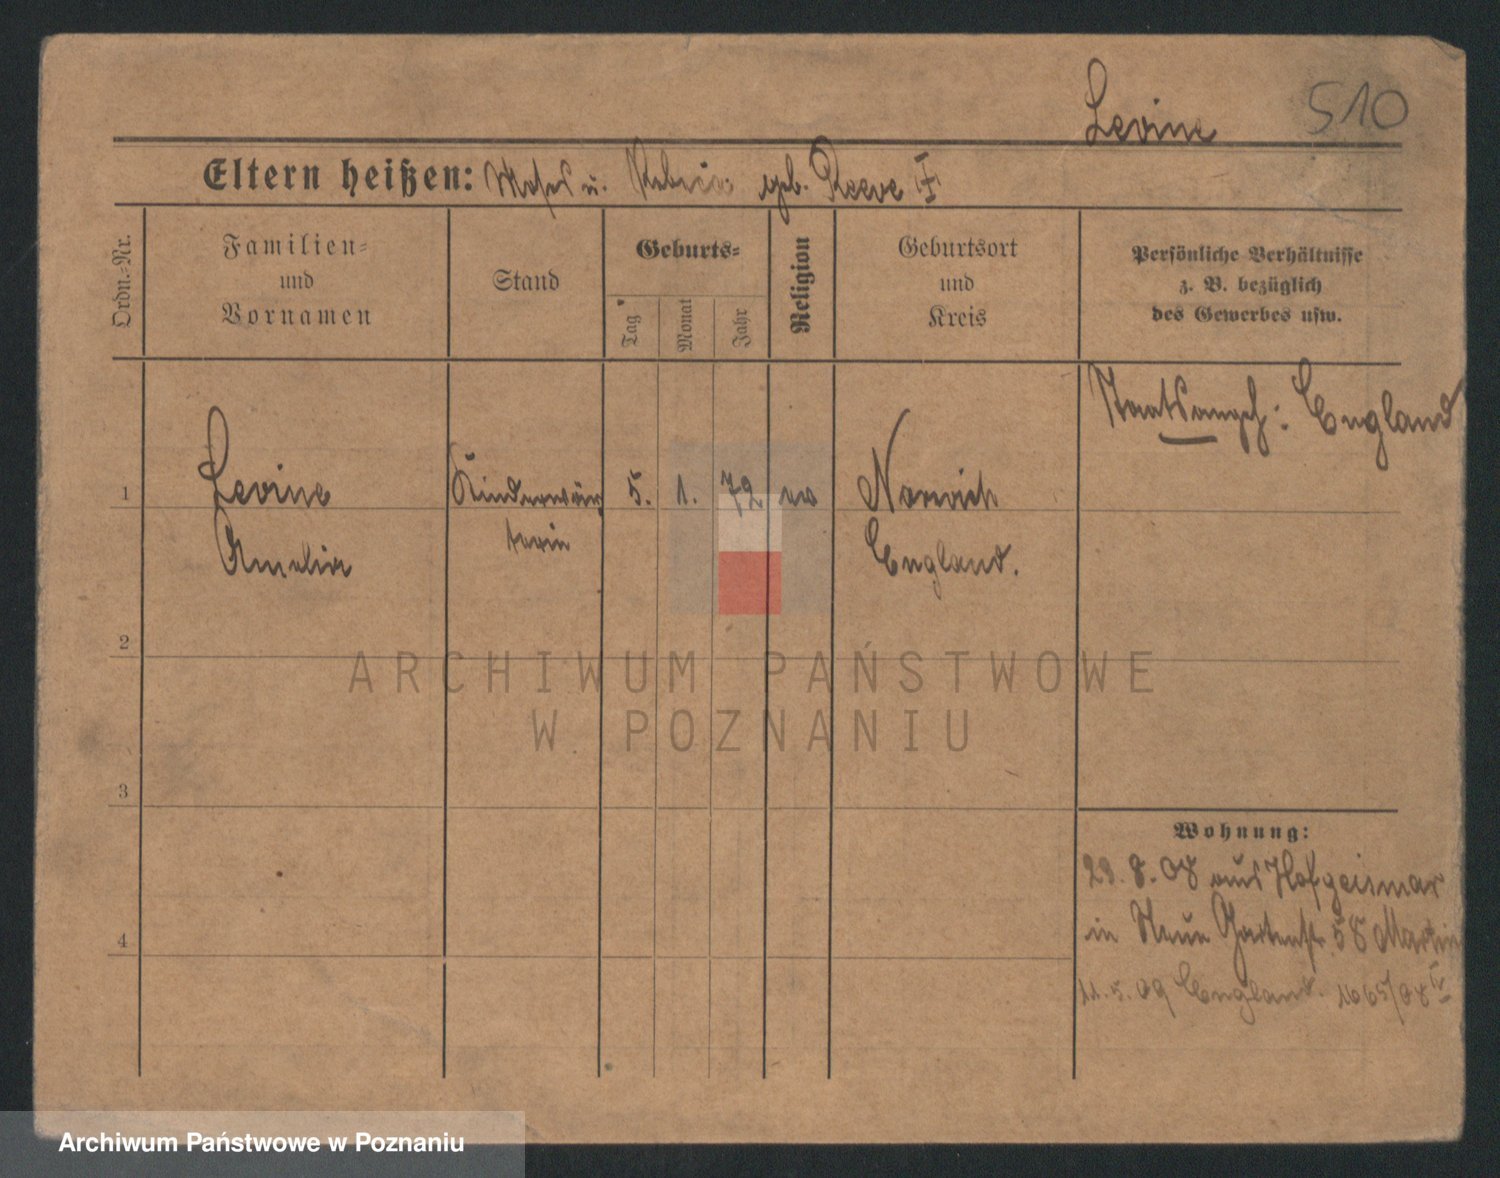 Levine 510
Eltern heißen: Moses u. Rebecca geb. Reeve
Ordn.=Nr.
Familien=
und
Vornamen
Stand
Geburts=
Tag
Monat
Jahr
Religion
Geburtsort
und
Kreis
Persönliche Verhältnisse
z. B. bezüglich
des Gewerbes usw.
Staatsangeh: England
1 Levine Kinderwär 5. 1. 72 Norwich
Amelia terin England.
2
3
4
Wohnung:
29. 8. 08 aus Hofgeismar
in Neue Gartenstr. 58 Martin
11. 5. 09 England. 1065/08
ARCHIWUM PAŃSTWOWE
W POZNANIU
Archiwum Państwowe w Poznaniu